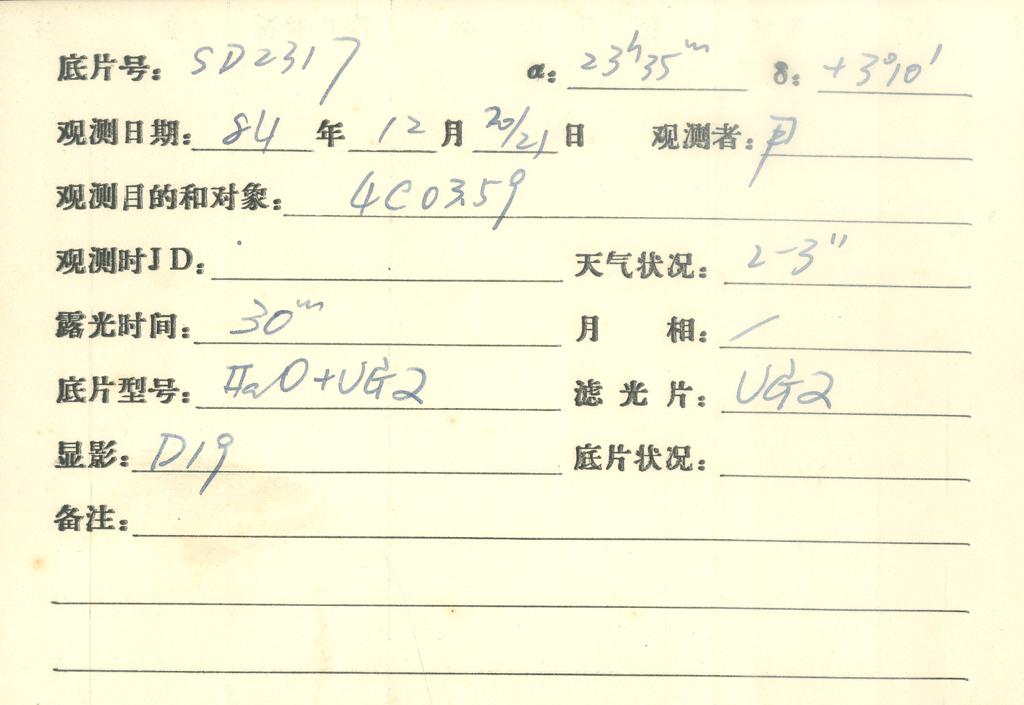 底片号: SD2317 α: 23ʰ35ᵐ δ: +3°10′
观测日期: 84 年 12 月 20/21 日 观测者:
观测目的和对象: 4C03.59
观测时JD: 天气状况: 2-3″
露光时间: 30ᵐ 月 相: /
底片型号: IIaO+UG2 滤光片: UG2
显影: D19 底片状况:
备注: